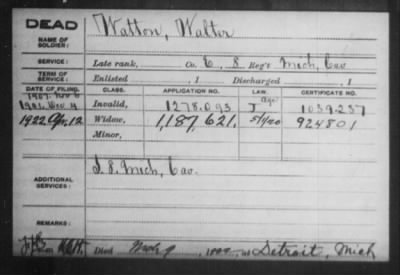 DEAD
NAME OF SOLDIER: Watton, Walter
SERVICE: Late rank, Co. C, 8 Reg't Mich, Cav
TERM OF SERVICE: Enlisted , 1 Discharged , 1
DATE OF FILING. CLASS. APPLICATION NO. LAW. CERTIFICATE NO.
Age
Invalid, 1278.093 J 1039.257
1922 Apr, 12 Widow, 1,187,621. 5/1/20 924801
Minor,
ADDITIONAL SERVICES: Mich, Cav.
REMARKS:
Died at Detroit, Mich